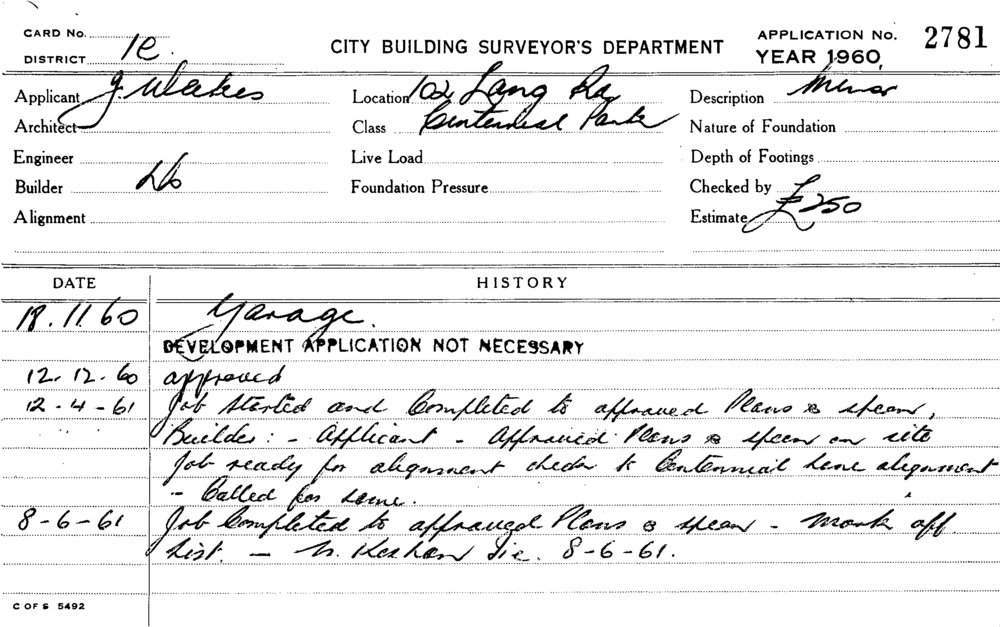 CARD No.
DISTRICT 1e.
CITY BUILDING SURVEYOR'S DEPARTMENT
APPLICATION No. 2781
YEAR 1960
Applicant J. Weekes
Location 102 Lang Rd
Description Minor
Architect
Class Centennial Park
Nature of Foundation
Engineer
Live Load
Depth of Footings
Builder Do
Foundation Pressure
Checked by
Alignment
Estimate £250
DATE HISTORY
18.11.60 Garage.
DEVELOPMENT APPLICATION NOT NECESSARY
12.12.60 approved
12-4-61 Job Started and Completed to approved Plans & specn,
Builder: - Applicant - Approved Plans & specn on site
Job ready for alignment check to Centennial Lane alignment
- Called for same.
8-6-61 Job Completed to approved Plans & specn - Mark off
List. - 8-6-61.
C OF S 5492